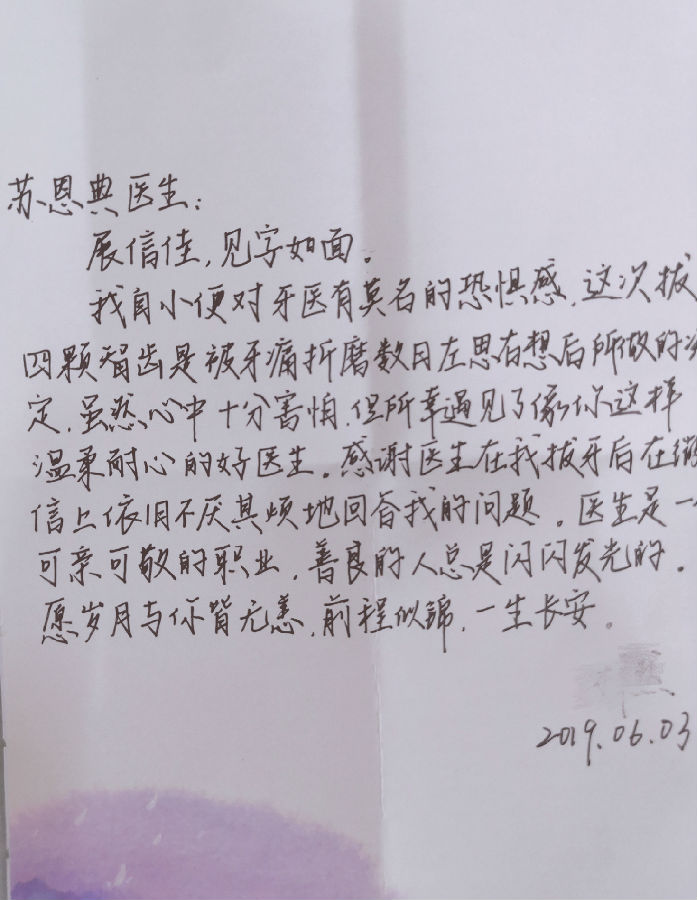 苏恩典医生:
展信佳,见字如面。
我自小便对牙医有莫名的恐惧感,这次拔
四颗智齿是被牙痛折磨数月左思右想后所做的决
定,虽然心中十分害怕,但所幸遇见了像你这样
温柔耐心的好医生。感谢医生在我拔牙后在微
信上依旧不厌其烦地回答我的问题。医生是一
可亲可敬的职业,善良的人总是闪闪发光的。
愿岁月与你皆无恙,前程似锦,一生长安。
2019.06.03